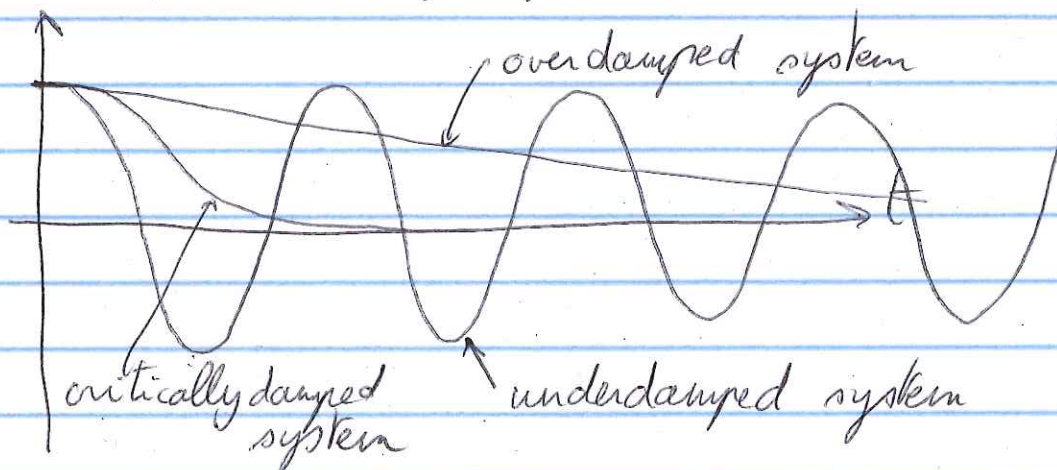 overdamped system
t
critically damped
system
underdamped system